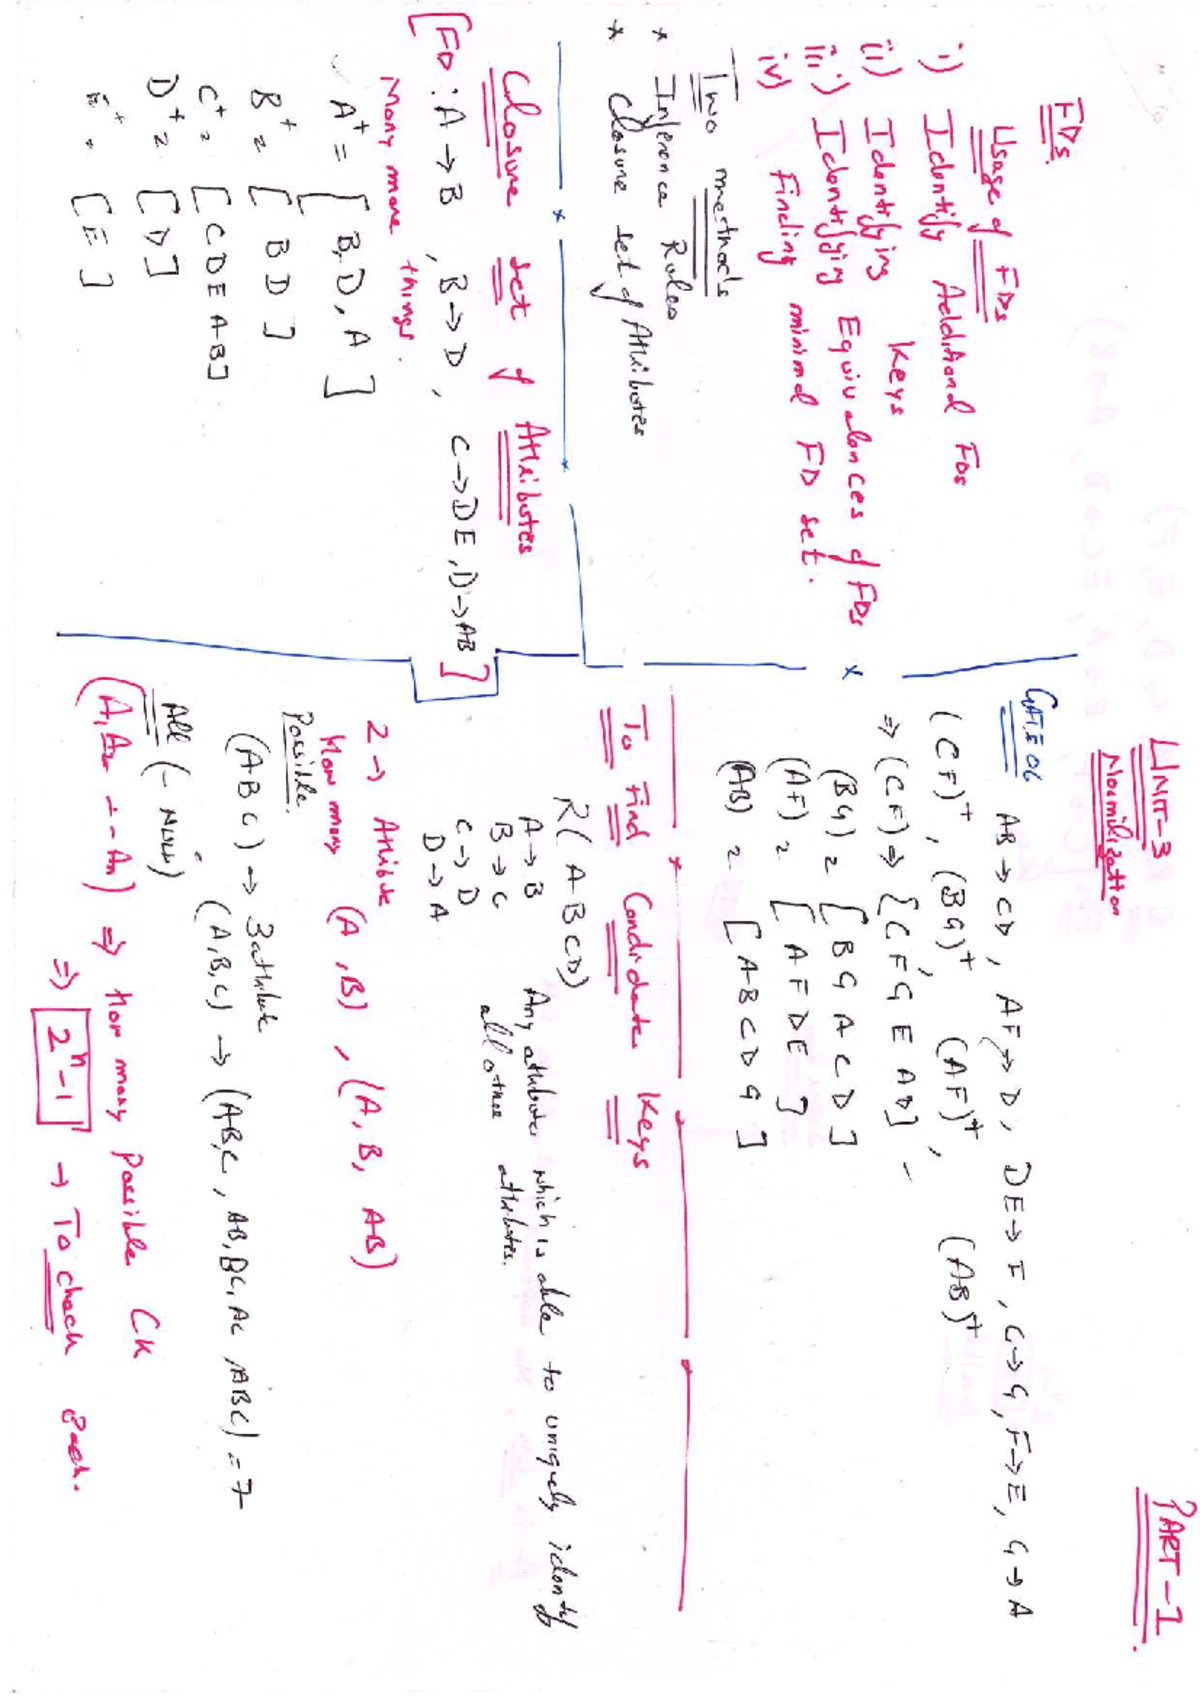 UNIT-3
Normilization
PART-1
FDs
Usage of FDs
i) Identify Additional FDs
ii) Identifying Keys
iii) Identifying Equivalances of FDs
iv) Finding minimal FD set.
Two methods
* Inference Rules
* Closure set of Attributes
Closure set of Attributes
[FD: A→B, B→D, C→DE, D→AB]
Many more things.
A+ = [B, D, A]
B+ = [BD]
C+ = [CDEAB]
D+ = [D]
E+ = [E]
GATE 06
AB→CD, AF→D, DE→F, C→G, F→E, G→A
(CF)+, (BG)+, (AF)+, (AB)+
⇒ (CF) ⇒ {CFGEAD] -
(BG) = [BGACD]
(AF) = [AFDE]
(AB) = [ABCDG]
To Find Condidate Keys
R(ABCD)
A→B
B→C
C→D
D→A
Any attributes which is able to uniquely idenify
all other attributes.
2→ Attibute
How many (A,B), (A, B, AB)
Possible.
(ABC) → 3 attibute
(A,B,C) → (A,B,C, AB, BC, AC, ABC) = 7
All (- NULL)
(A1 A2 --- An) ⇒ How many possible CK
⇒ 2^n-1 → To check each.